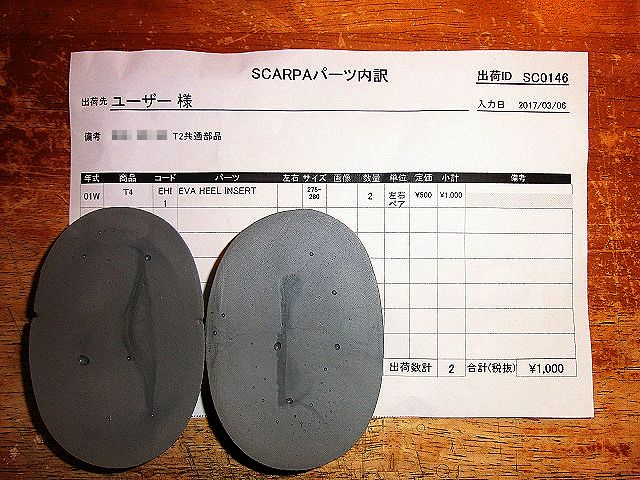 SCARPAパーツ内訳
出荷ID SC0146
出荷先 ユーザー 様
入力日 2017/03/06
備考 T2共通部品
年式 商品 コード パーツ 左右 サイズ 画像 数量 単位 定価 小計 備考
01W T4 EHI 1 EVA HEEL INSERT 275-280 2 左右ペア ¥500 ¥1,000
出荷数計 2 合計(税抜) ¥1,000